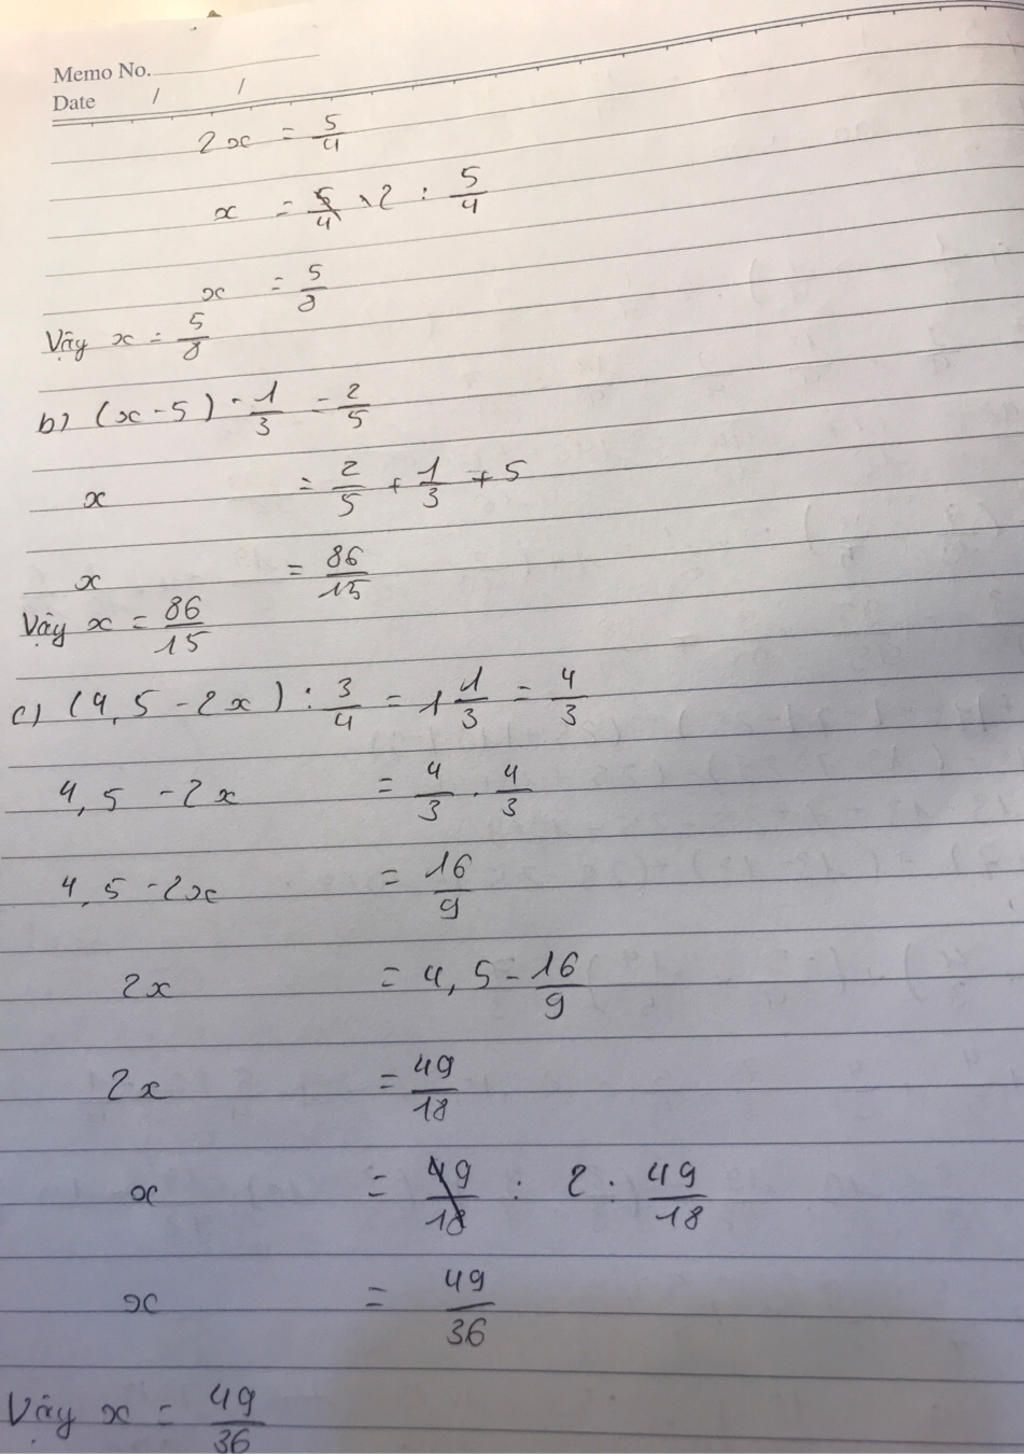 Memo No.
Date / /
2x = 5/4
x = 2 : 5/4
x = 5/8
Vậy x = 5/8
b) (x - 5) - 1/3 = 2/5
x = 2/5 + 1/3 + 5
x = 86/15
Vậy x = 86/15
c) (4,5 - 2x) : 3/4 = 1 1/3 = 4/3
4,5 - 2x = 4/3 . 4/3
4,5 - 2x = 16/9
2x = 4,5 - 16/9
2x = 49/18
x = 2 : 49/18
x = 49/36
Vậy x = 49/36